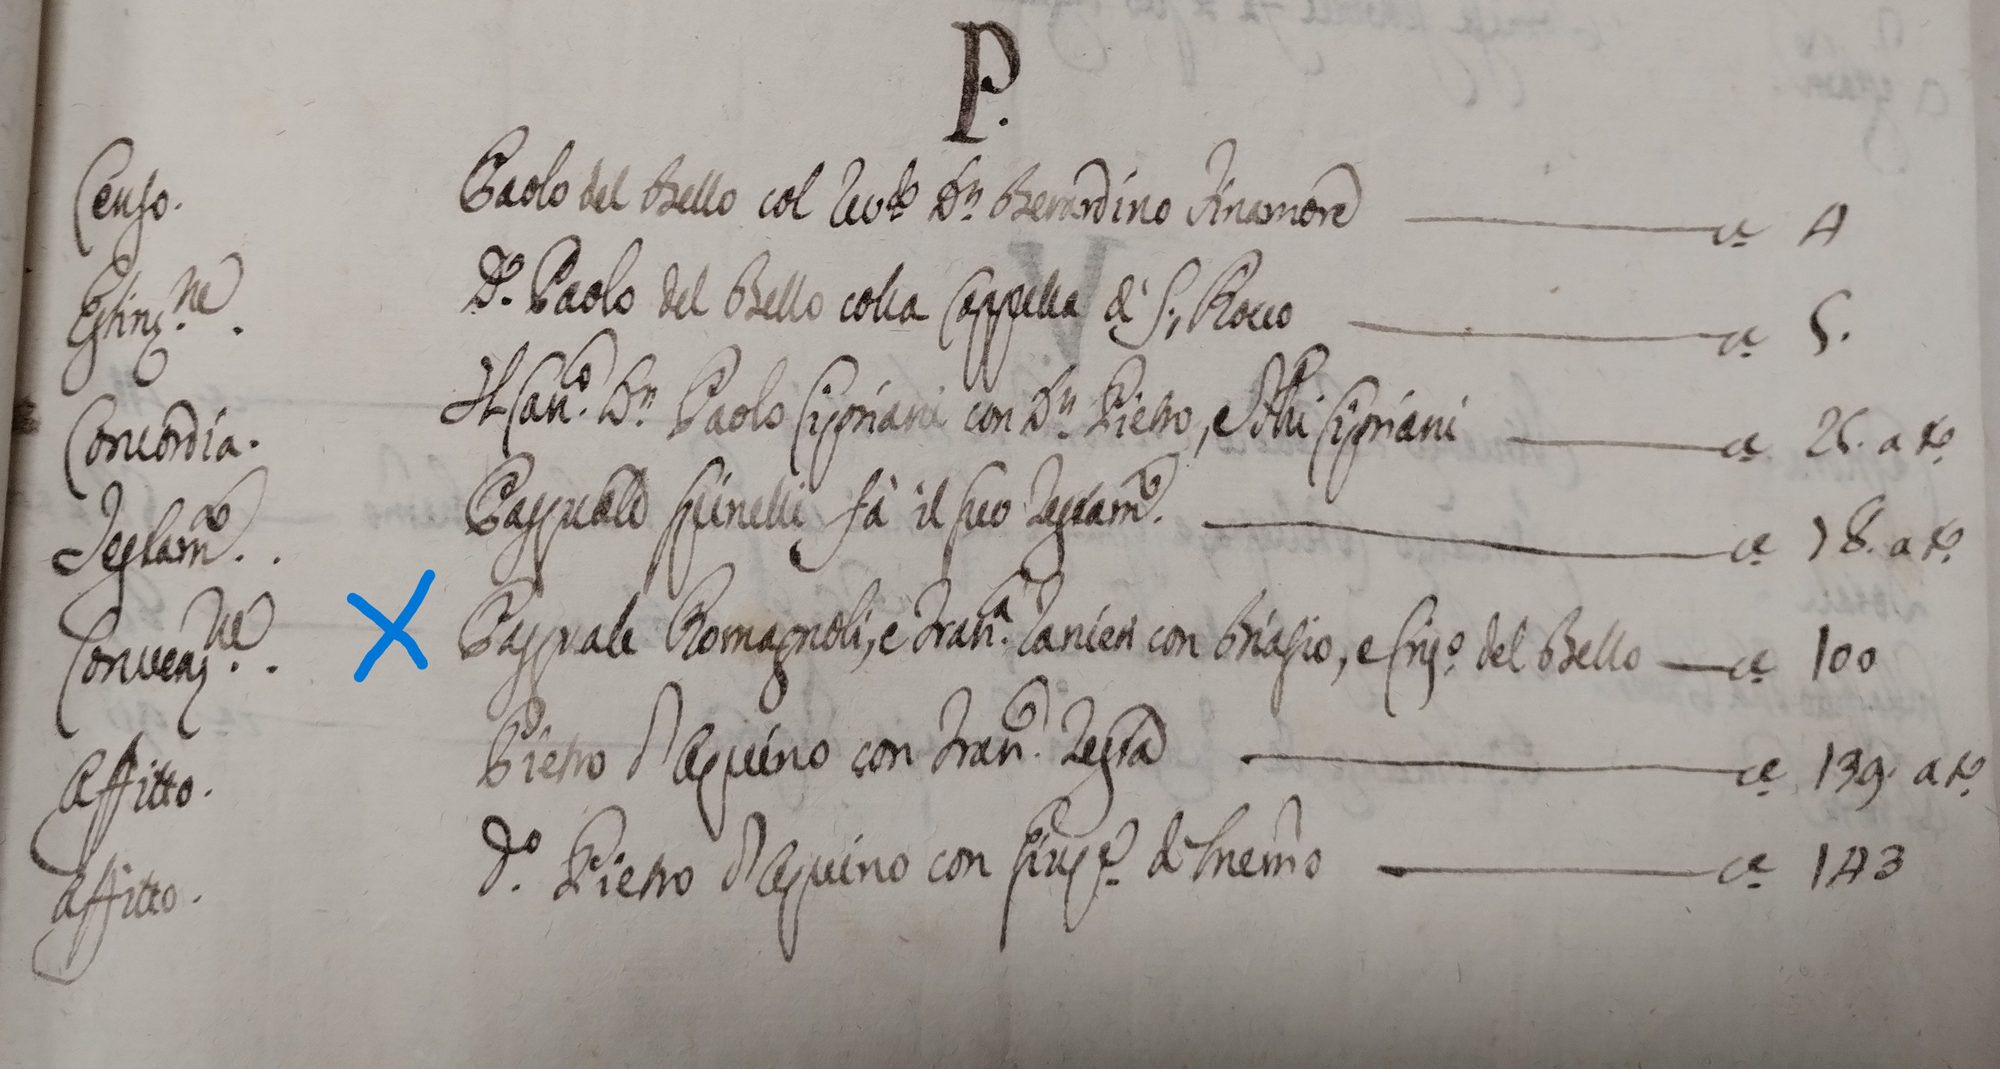 P.
Censo. Paolo del Bello col Revdo Dn Berardino Finamore ca 4
Estinzne. Do. Paolo del Bello colla Cappella di S. Rocco ca 5.
Concordia. Il Canco. Dn Paolo Cipriani con Dn Pietro, e Cipriani ca 25. a to
Testamo. Pasquale Spinelli fà il suo Testamo. ca 78. a to
Convenzne. Pasquale Romagnoli, e Frana. Ranieri con Biasio, e del Bello ca 100
Affitto. Pietro d'Aquino con Franco. Testa ca 139. a to
Affitto. do. Pietro d'Aquino con Giuse. di ca 143